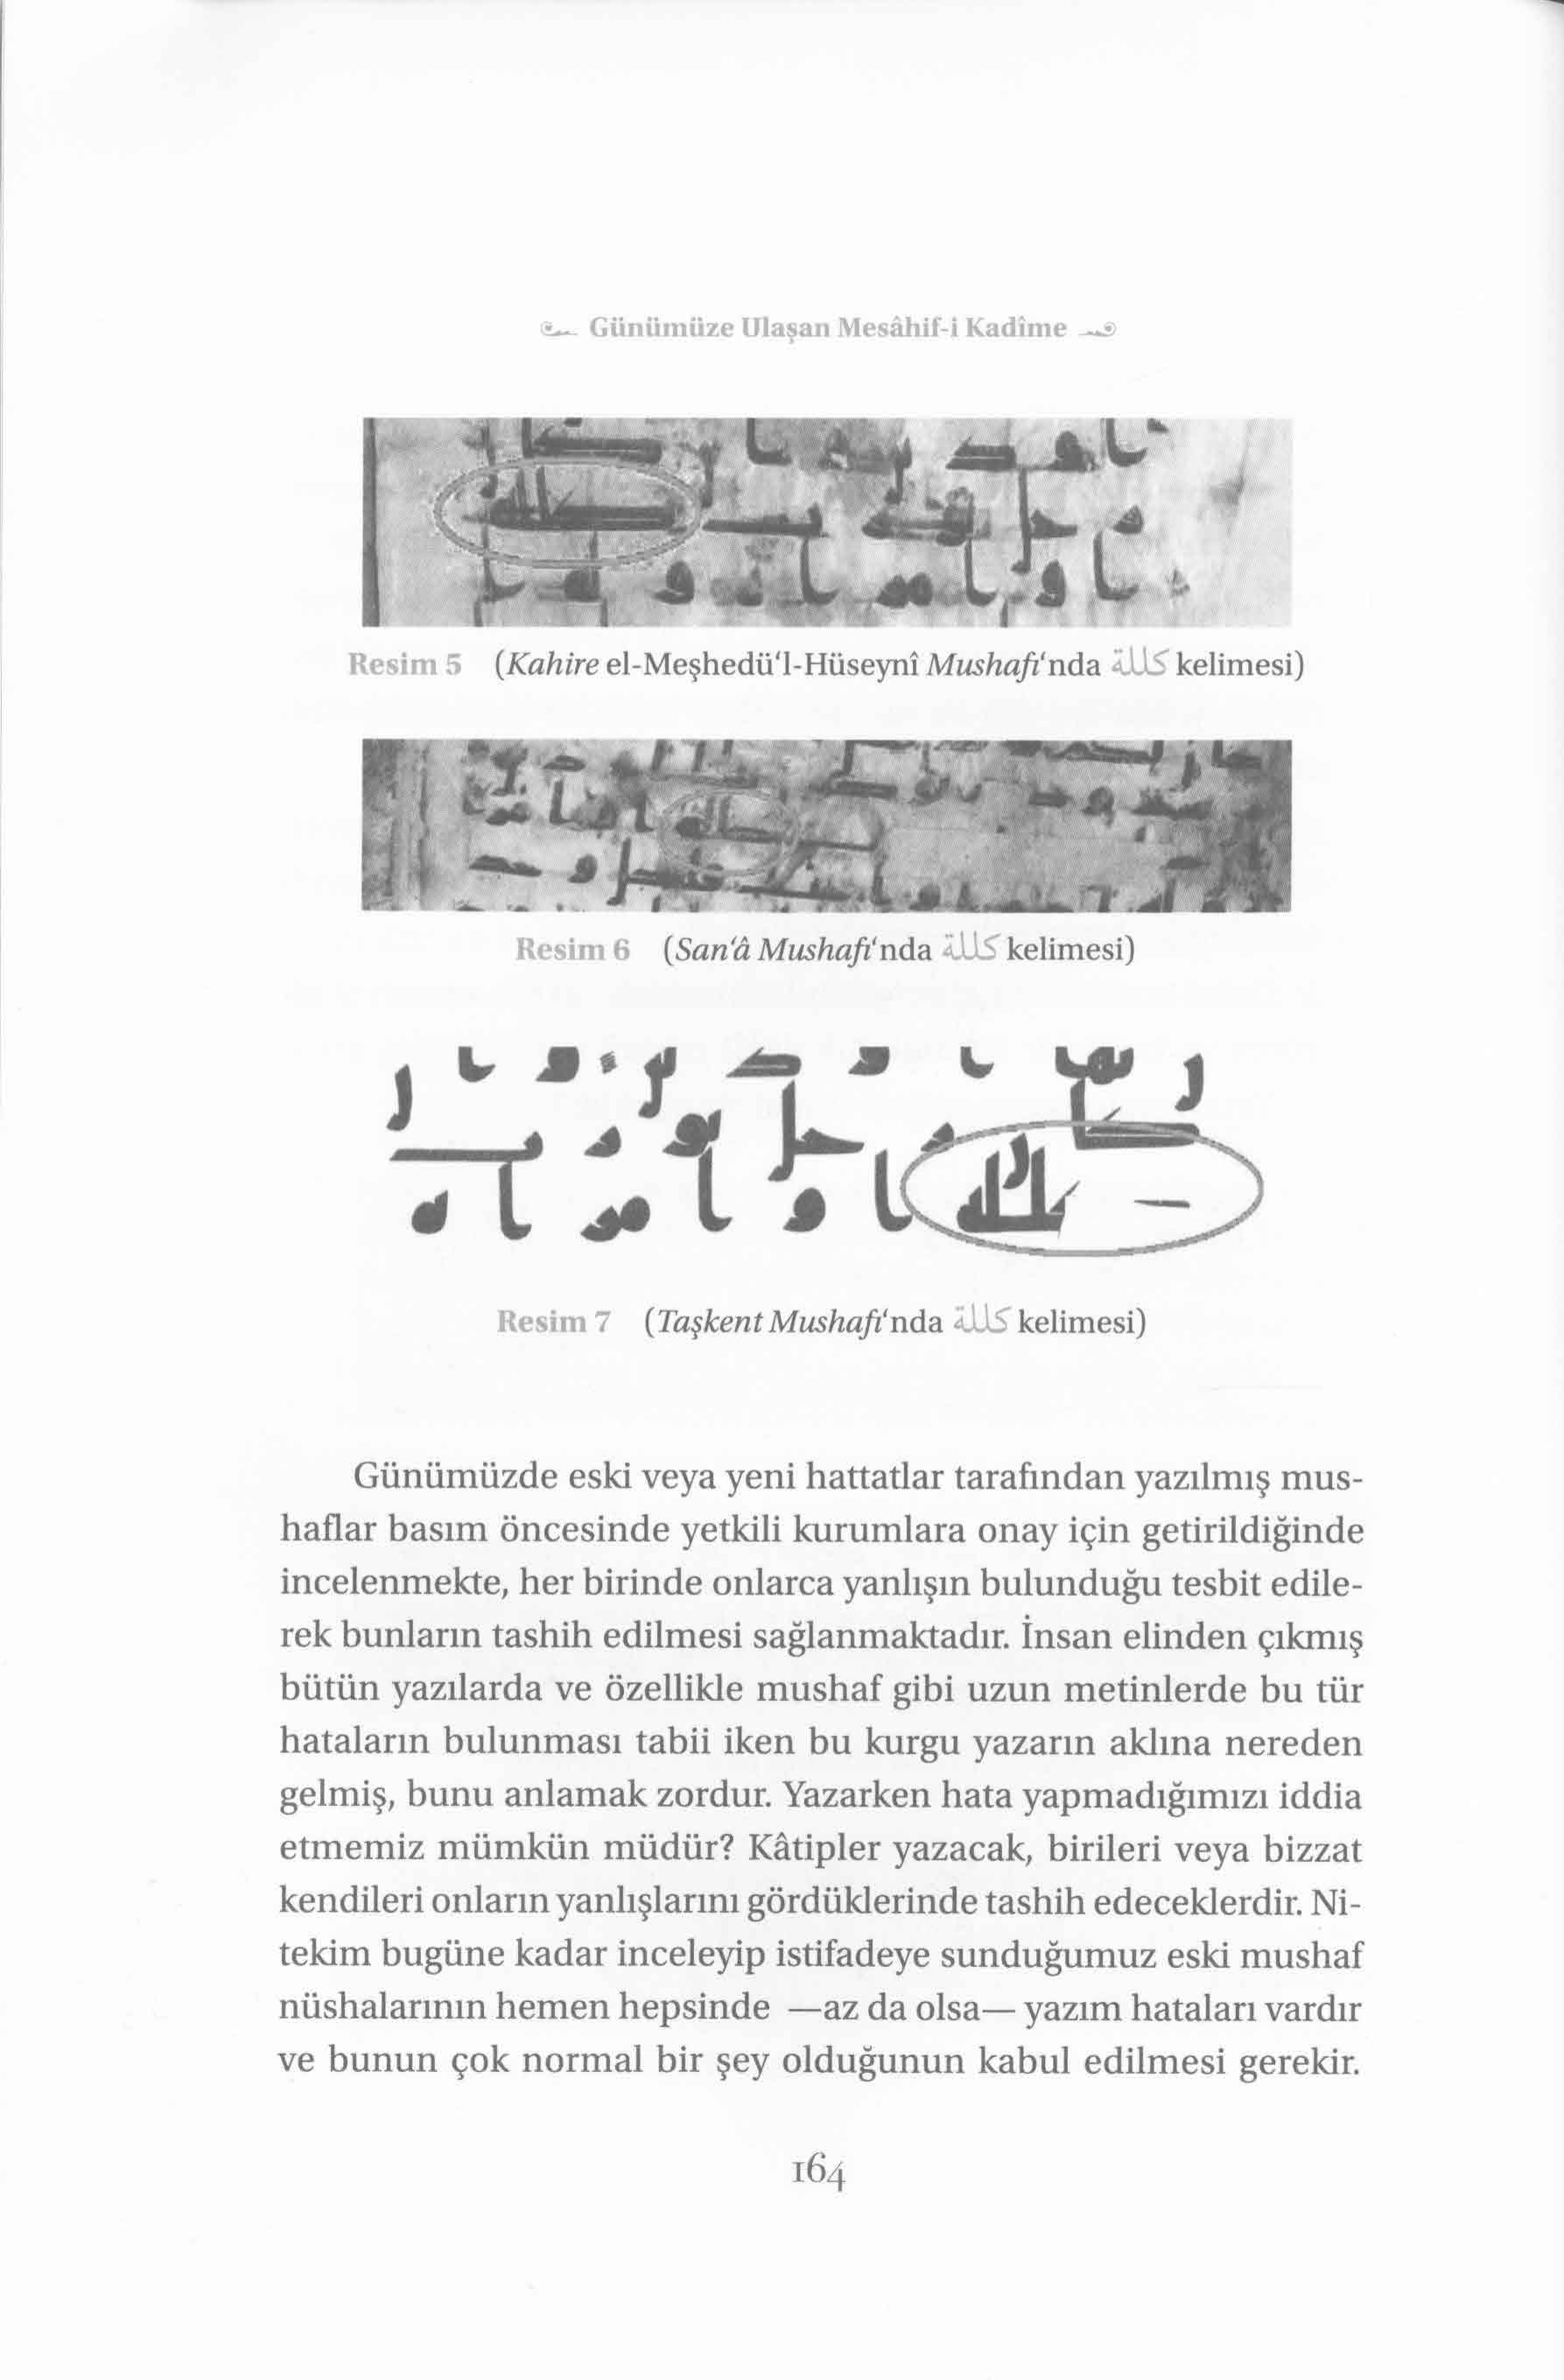 Günümüze Ulaşan Mesâhif-i Kadîme
Resim 5 (Kahire el-Meşhedü'l-Hüseynî Mushafı'nda كللة kelimesi)
Resim 6 (San'â Mushafı'nda كللة kelimesi)
Resim 7 (Taşkent Mushafı'nda كللة kelimesi)
Günümüzde eski veya yeni hattatlar tarafından yazılmış mus-
haflar basım öncesinde yetkili kurumlara onay için getirildiğinde
incelenmekte, her birinde onlarca yanlışın bulunduğu tesbit edile-
rek bunların tashih edilmesi sağlanmaktadır. İnsan elinden çıkmış
bütün yazılarda ve özellikle mushaf gibi uzun metinlerde bu tür
hataların bulunması tabii iken bu kurgu yazarın aklına nereden
gelmiş, bunu anlamak zordur. Yazarken hata yapmadığımızı iddia
etmemiz mümkün müdür? Kâtipler yazacak, birileri veya bizzat
kendileri onların yanlışlarını gördüklerinde tashih edeceklerdir. Ni-
tekim bugüne kadar inceleyip istifadeye sunduğumuz eski mushaf
nüshalarının hemen hepsinde —az da olsa— yazım hataları vardır
ve bunun çok normal bir şey olduğunun kabul edilmesi gerekir.
164